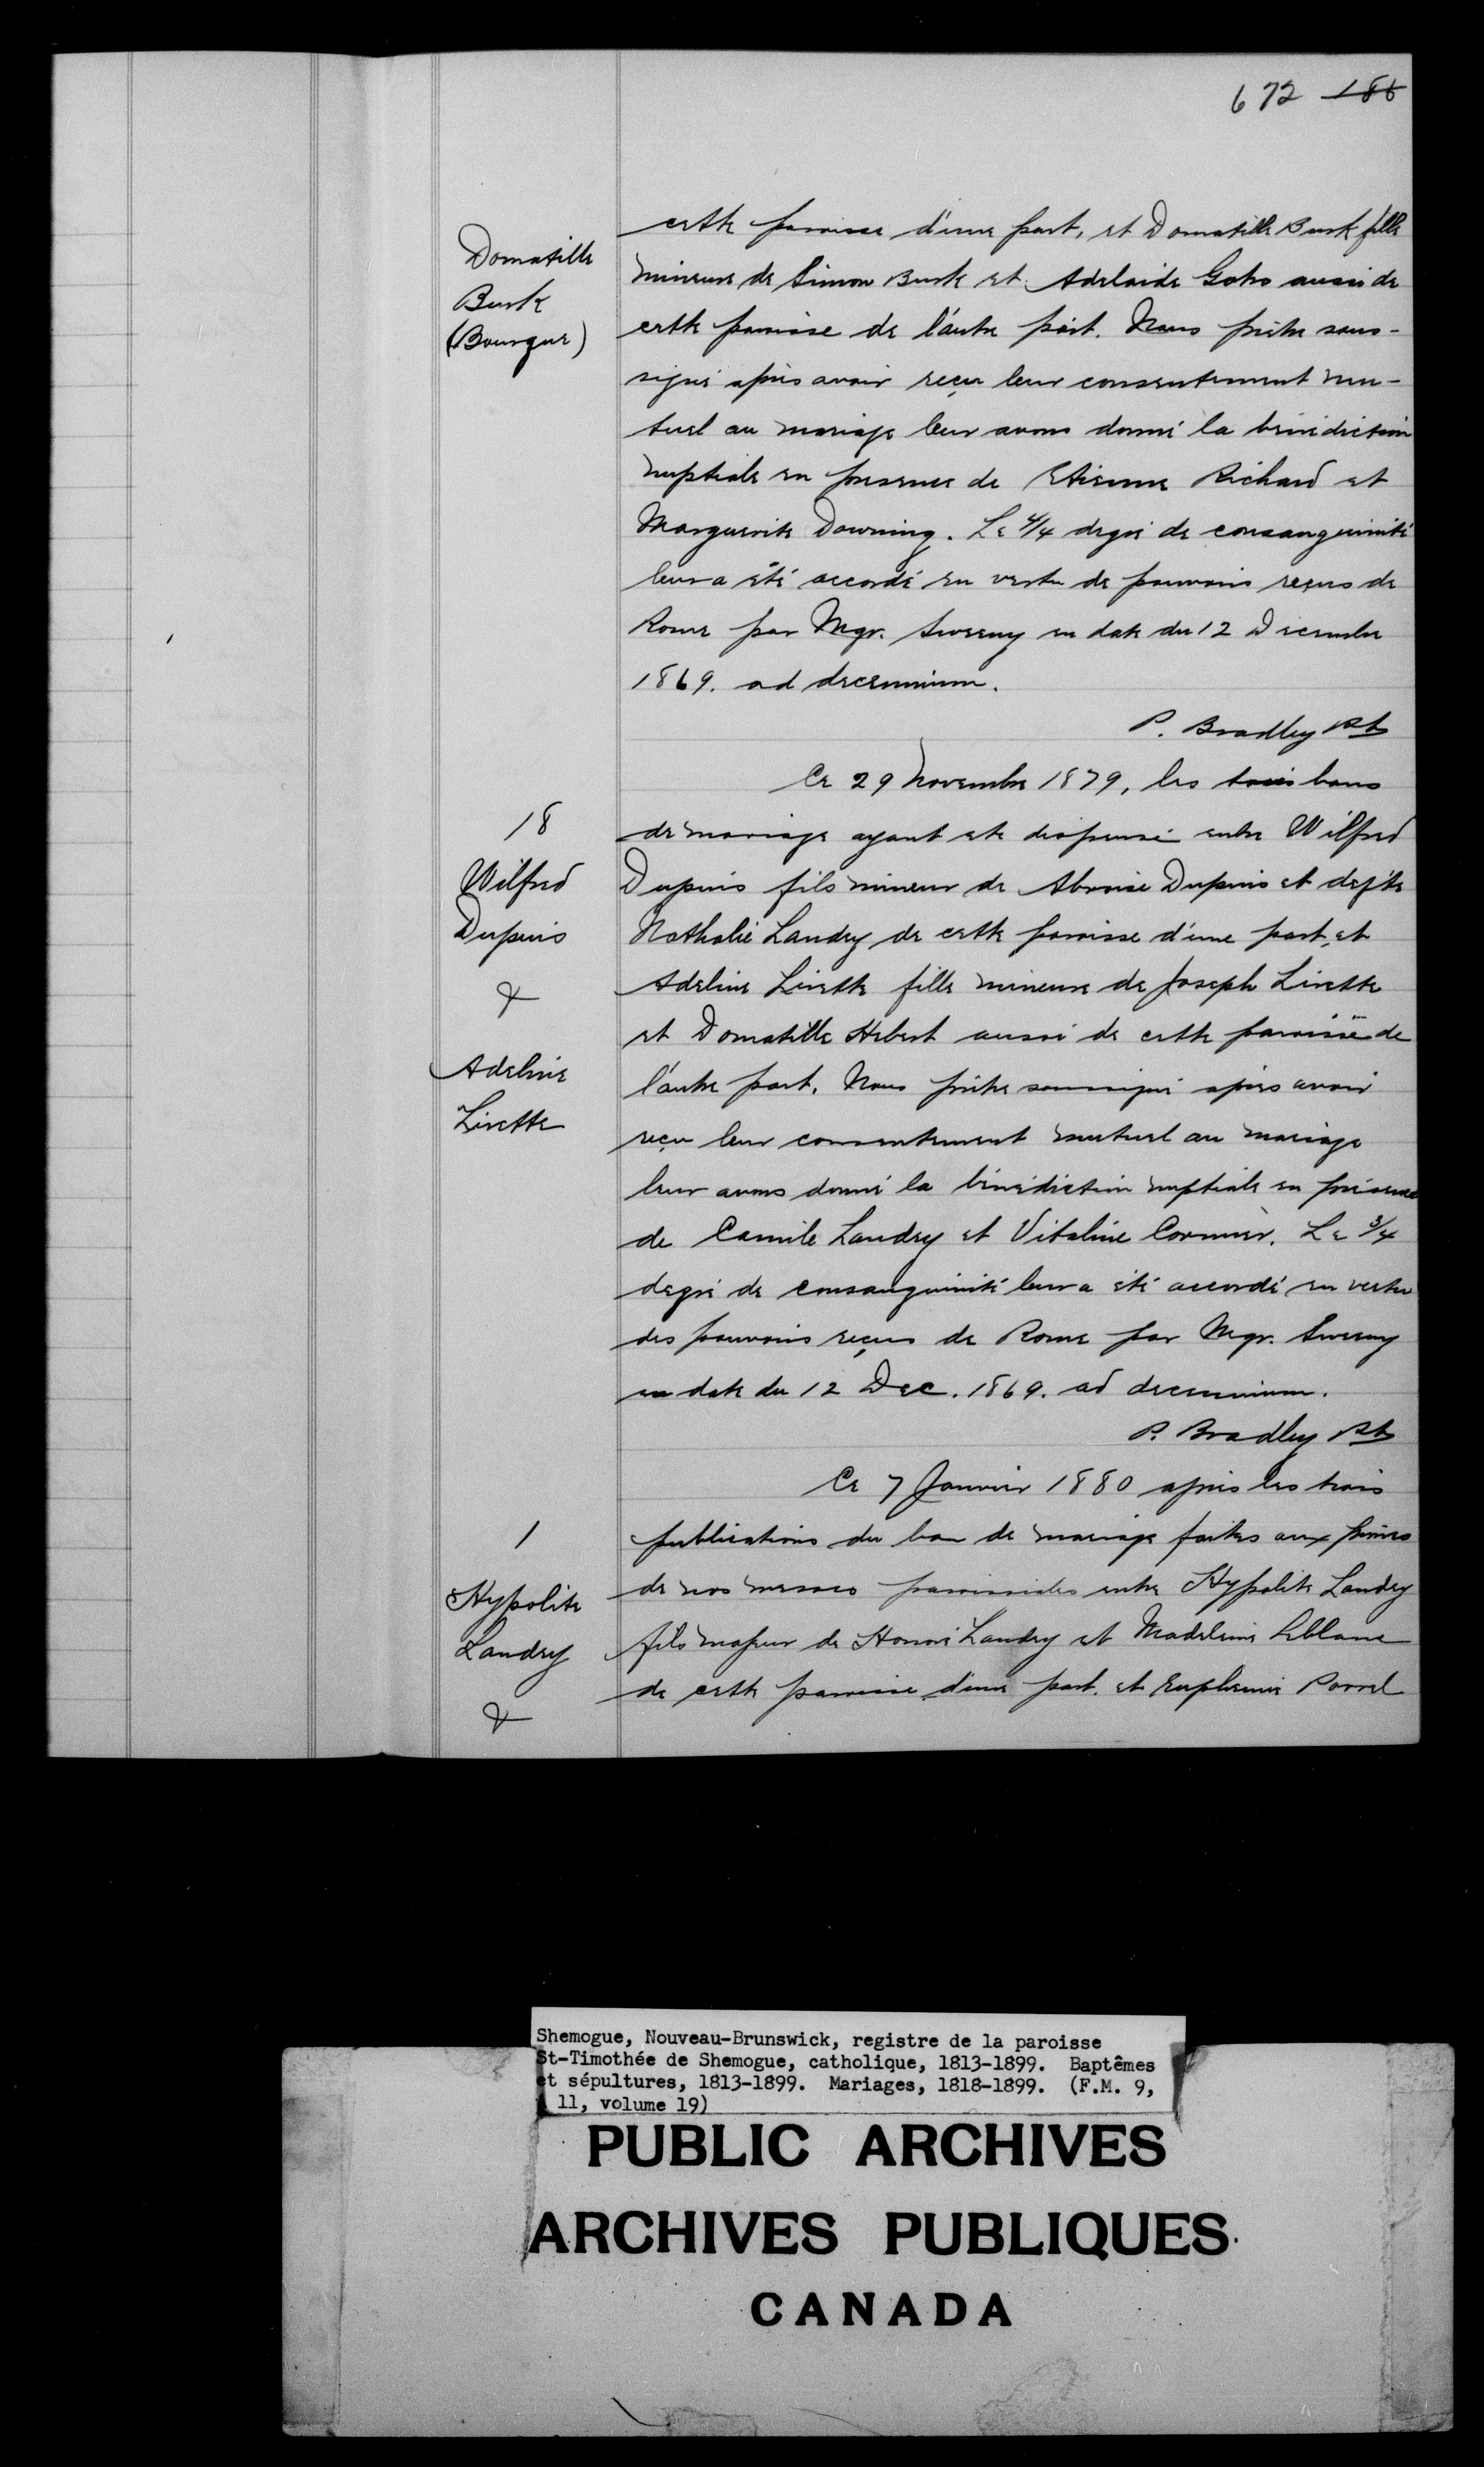 672 186
Domatille
Burk
(Bourque)
cette paroisse d'une part, et Domatille Burk fille
mineure de Simon Burk et Adelaide Goto aussi de
cette paroisse de l'autre part. Nous prêtre sous-
signé après avoir reçu leur consentement mu-
tuel au mariage leur avons donné la bénédiction
nuptiale en presence de Etienne Richard et
Marguerite Downing. Le 4/4 degré de consanguinité
leur a été accordé en vertu de pouvoirs reçus de
Rome par Mgr. Sweeny en date du 12 Decembre
1869. ad decennium.
P. Bradley Pt
18
Wilfred
Dupuis
&
Adeline
Lirette
Ce 29 Novembre 1879, les trois bans
de mariage ayant ete dispensé entre Wilfred
Dupuis fils mineur de Abroise Dupuis et defte
Nathalie Landry de cette paroisse d'une part, et
Adeline Lirette fille mineure de Joseph Lirette
et Domatille Hebert aussi de cette paroisse de
l'autre part. Nous prêtre soussigné après avoir
reçu leur consentement mutuel au mariage
leur avons donné la bénédiction nuptiale en présence
de Camile Landry et Vitaline Cormier. Le 3/4
degré de consanguinité leur a été accordé en vertu
des pouvoirs reçus de Rome par Mgr. Sweeny
en date du 12 Dec. 1869. ad decennium.
P. Bradley Pt
1
Hypolite
Landry
&
Ce 7 Janvier 1880 après les trois
publications du ban de mariage faites aux prônes
de nos messes paroissiales entre Hypolite Landry
fils majeur de Honoré Landry et Madeleine Leblanc
de cette paroisse d'une part. et Euphemie Porrel
Shemogue, Nouveau-Brunswick, registre de la paroisse
St-Timothée de Shemogue, catholique, 1813-1899. Baptêmes
et sépultures, 1813-1899. Mariages, 1818-1899. (F.M. 9,
11, volume 19)
PUBLIC ARCHIVES
ARCHIVES PUBLIQUES
CANADA